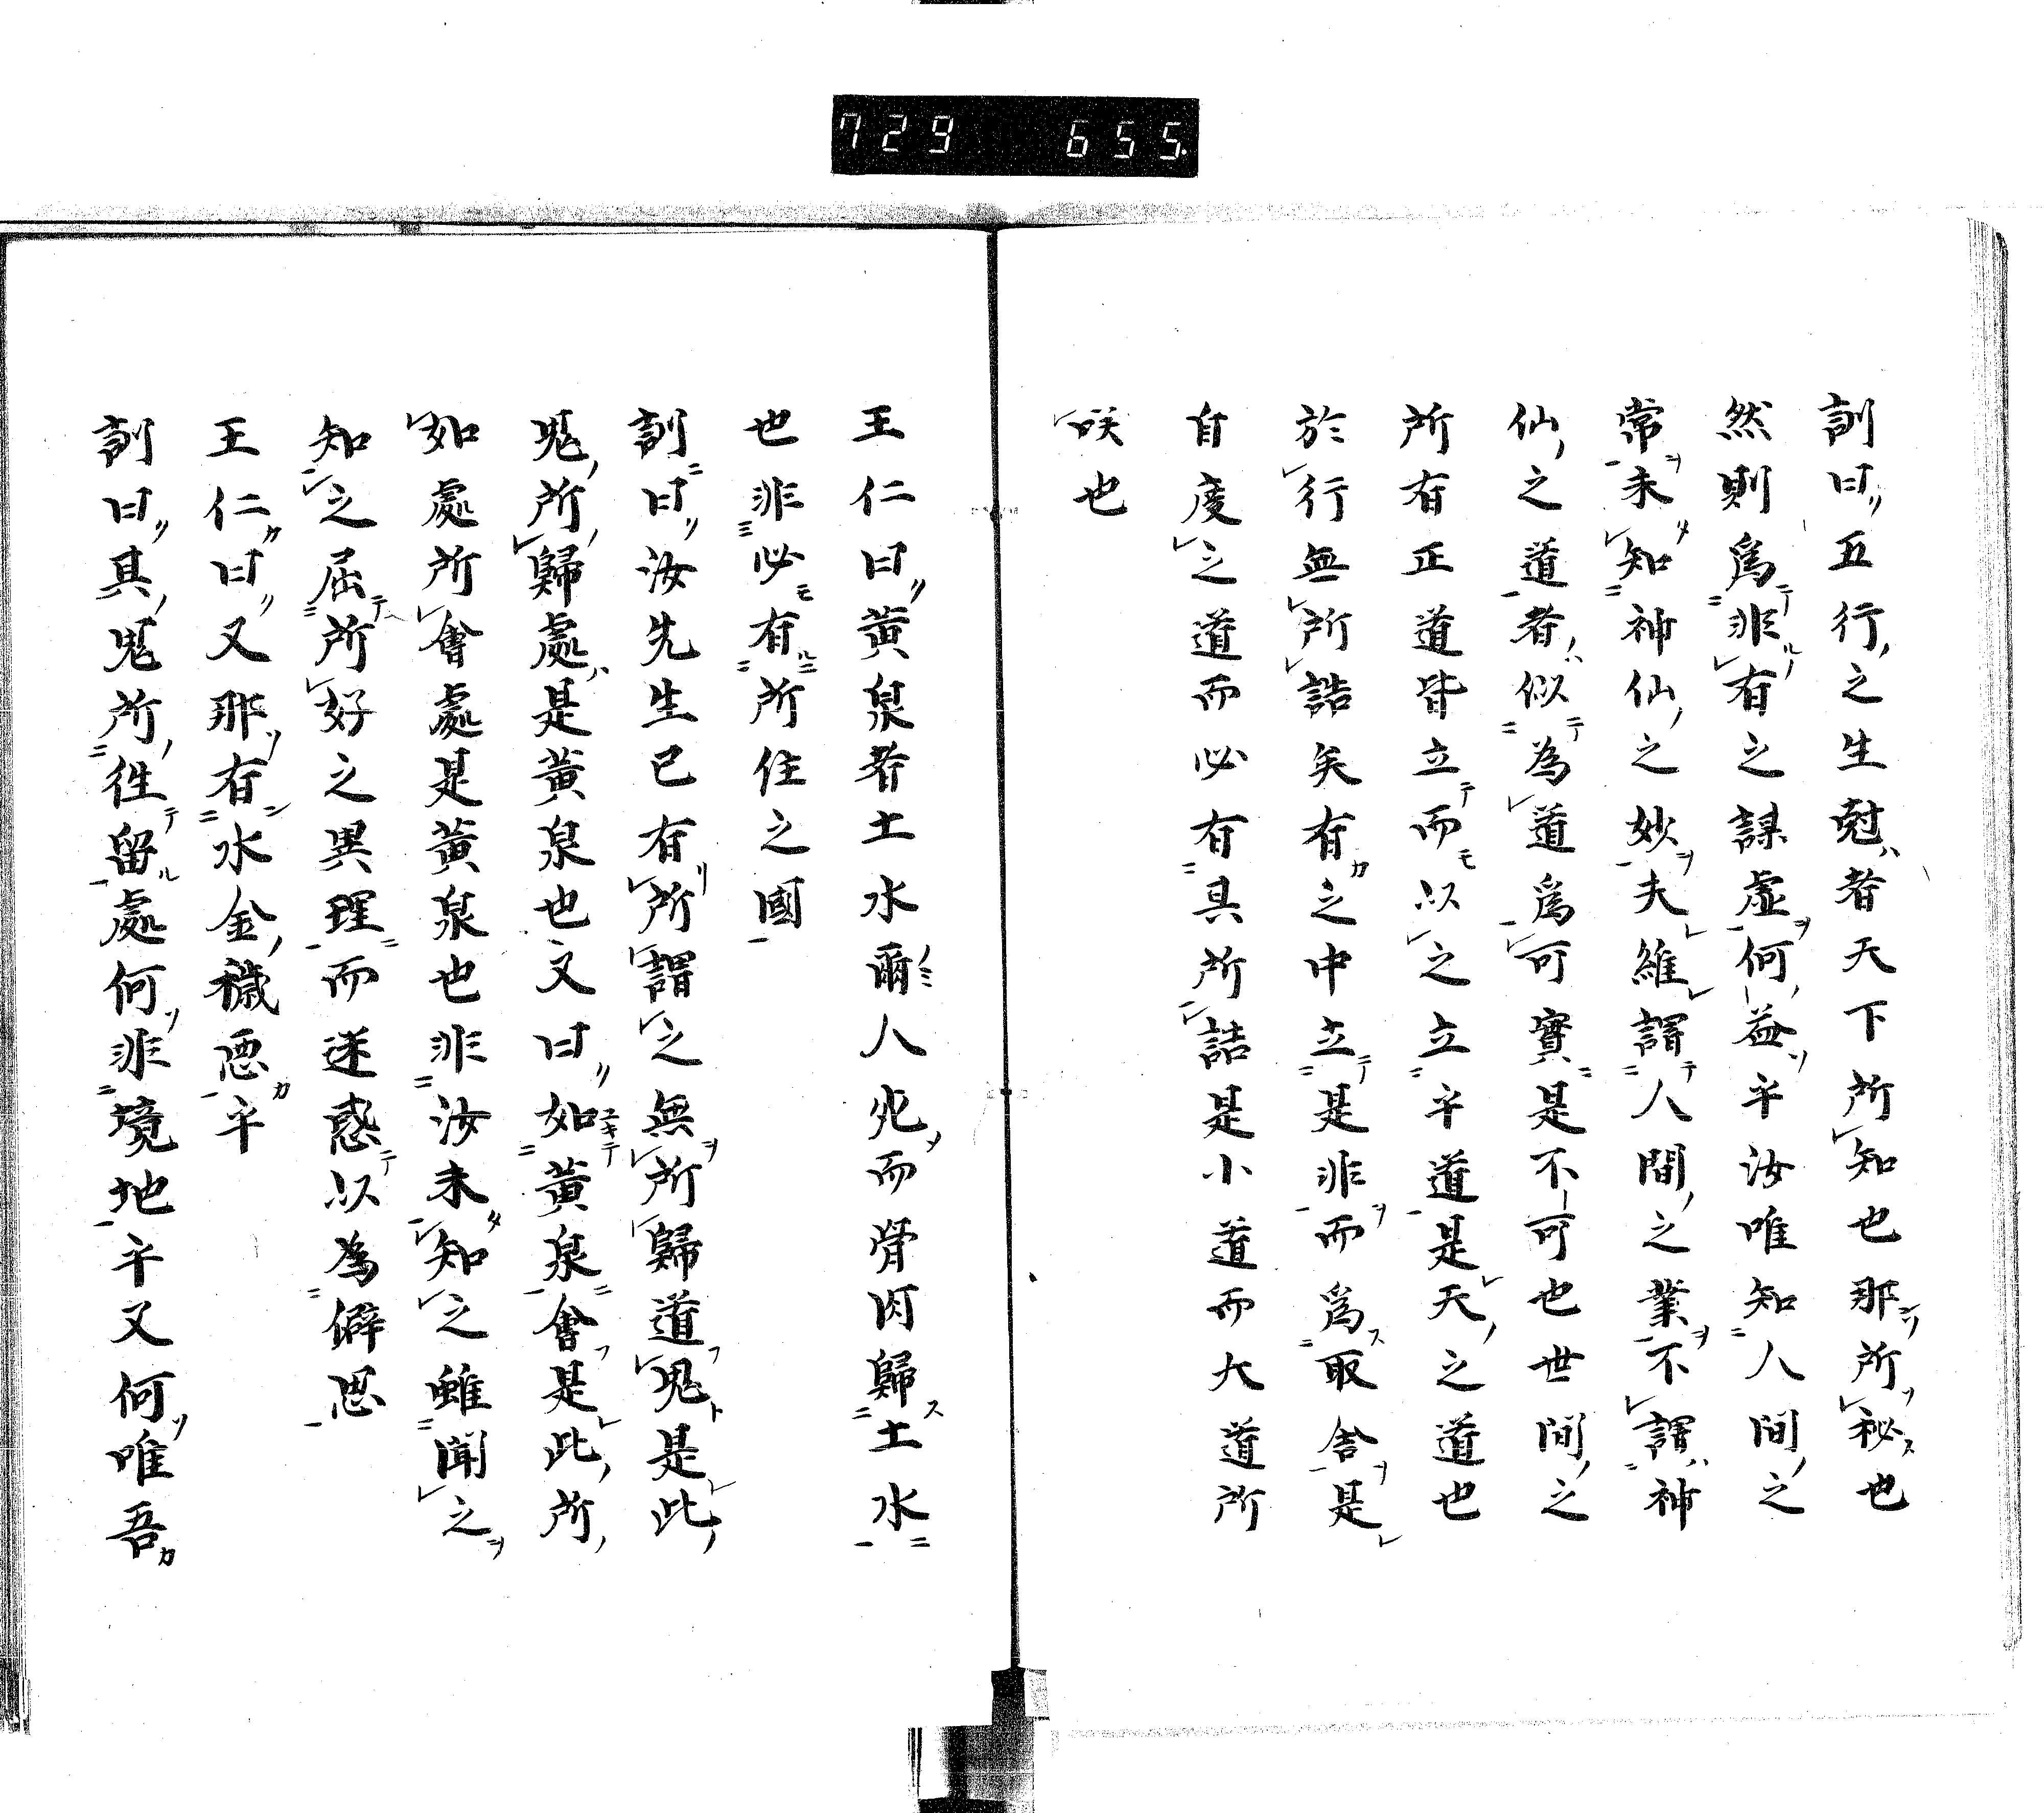 729 655
訓曰五行之生尅者天下所知也那所秘也
然則爲非有之謀虛何益乎汝唯知人间之
常未知神仙之妙夫維謂人間之業不謂神
仙之道者似為道爲可實是不可也世间之
所有正道皆立而以之立乎道是天之道也
於行無所誥矣有之中立是非而爲取舎是
自度之道而必有具所詰是小道而大道所
咲也
王仁曰黃泉者土水爾人死而骨肉歸土水
也非必有所住之國
訓曰汝先生已有所謂之無所歸道鬼是此
鬼所歸處是黃泉也又曰如黃泉會是此所
如處所會處是黃泉也非汝未知之雖聞之
知之屈所好之異理而迷惑以為僻思
王仁曰又那有水金穢悪乎
訓曰其鬼所徃留處何非境地乎又何唯吾